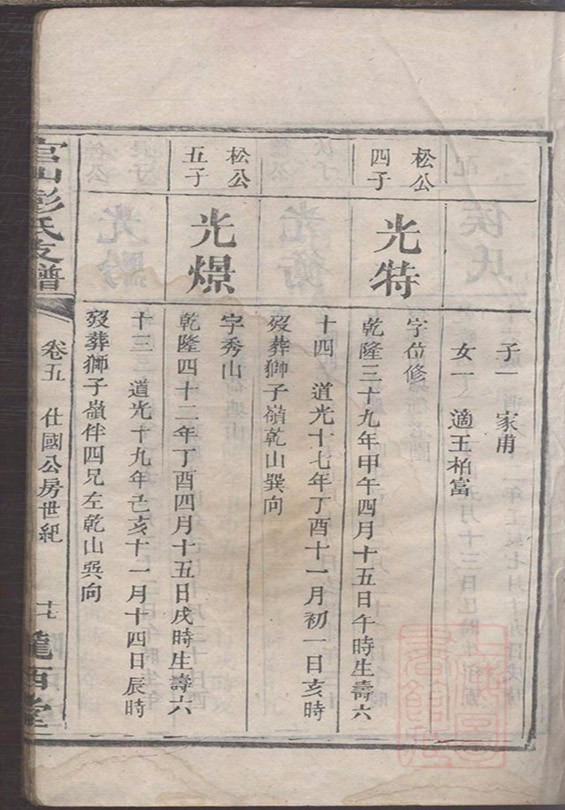 子一 家甫
女一 適王柏富
松公
四子
光特
字位修
乾隆三十九年甲午四月十五日午時生壽六
十四 道光十七年丁酉十一月初一日亥時
歿葬獅子嶺乾山巽向
松公
五子
光燝
字秀山
乾隆四十二年丁酉四月十五日戌時生壽六
十三 道光十九年己亥十一月十四日辰時
歿葬獅子嶺伴四兄左乾山巽向
官山彭氏支譜
卷五 仕國公房世紀
隴西堂